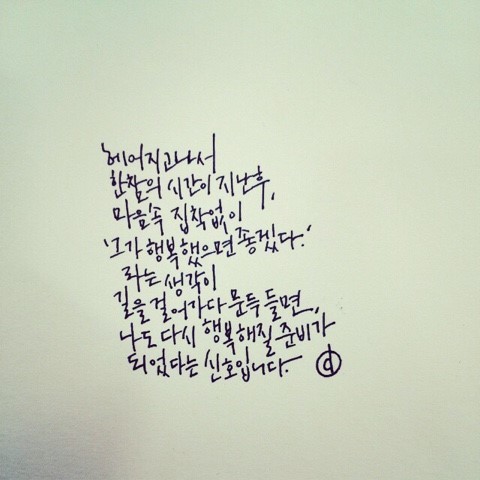 헤어지고나서
한참의 시간이 지난후,
마음속 집착없이
'그가 행복했으면 좋겠다.'
라는 생각이
길을 걸어가다 문득 들면,
나도 다시 행복해질 준비가
되었다는 신호입니다.